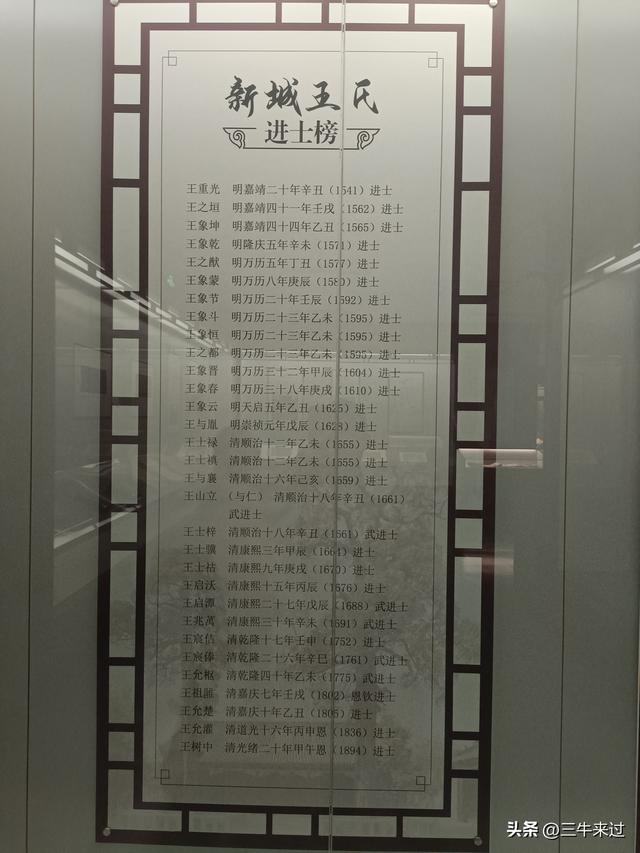 新城王氏
进士榜
王重光 明嘉靖二十年辛丑(1541)进士
王之垣 明嘉靖四十一年壬戌(1562)进士
王象坤 明嘉靖四十四年乙丑(1565)进士
王象乾 明隆庆五年辛未(1571)进士
王之猷 明万历五年丁丑(1577)进士
王象蒙 明万历八年庚辰(1580)进士
王象节 明万历二十年壬辰(1592)进士
王象斗 明万历二十三年乙未(1595)进士
王象恒 明万历二十三年乙未(1595)进士
王之都 明万历二十三年乙未(1595)进士
王象晋 明万历三十二年甲辰(1604)进士
王象春 明万历三十八年庚戌(1610)进士
王象云 明天启五年乙丑(1625)进士
王与胤 明崇祯元年戊辰(1628)进士
王士禄 清顺治十二年乙未(1655)进士
王士禛 清顺治十二年乙未(1655)进士
王与襄 清顺治十六年己亥(1659)进士
王山立(与仁) 清顺治十八年辛丑(1661)
武进士
王士梓 清顺治十八年辛丑(1661)武进士
王士骥 清康熙三年甲辰(1664)进士
王士祜 清康熙九年庚戌(1670)进士
王启沃 清康熙十五年丙辰(1676)进士
王启潭 清康熙二十七年戊辰(1688)武进士
王兆萬 清康熙三十年辛未(1691)武进士
王宸佶 清乾隆十七年壬申(1752)进士
王宸俸 清乾隆二十六年辛巳(1761)武进士
王允枢 清乾隆四十年乙未(1775)武进士
王祖 清嘉庆七年壬戌(1802)恩钦进士
王允楚 清嘉庆十年乙丑(1805)进士
王允灌 清道光十六年丙申恩(1836)进士
王树中 清光绪二十年甲午恩(1894)进士
头条 @三牛来过